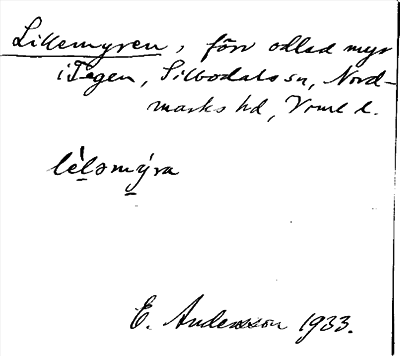 Lillemyren, förr odlad myr
i Tegen, Silbodals sn, Nord-
marks hd, Vrml l.
lèlsmýra
E. Andersson 1933.